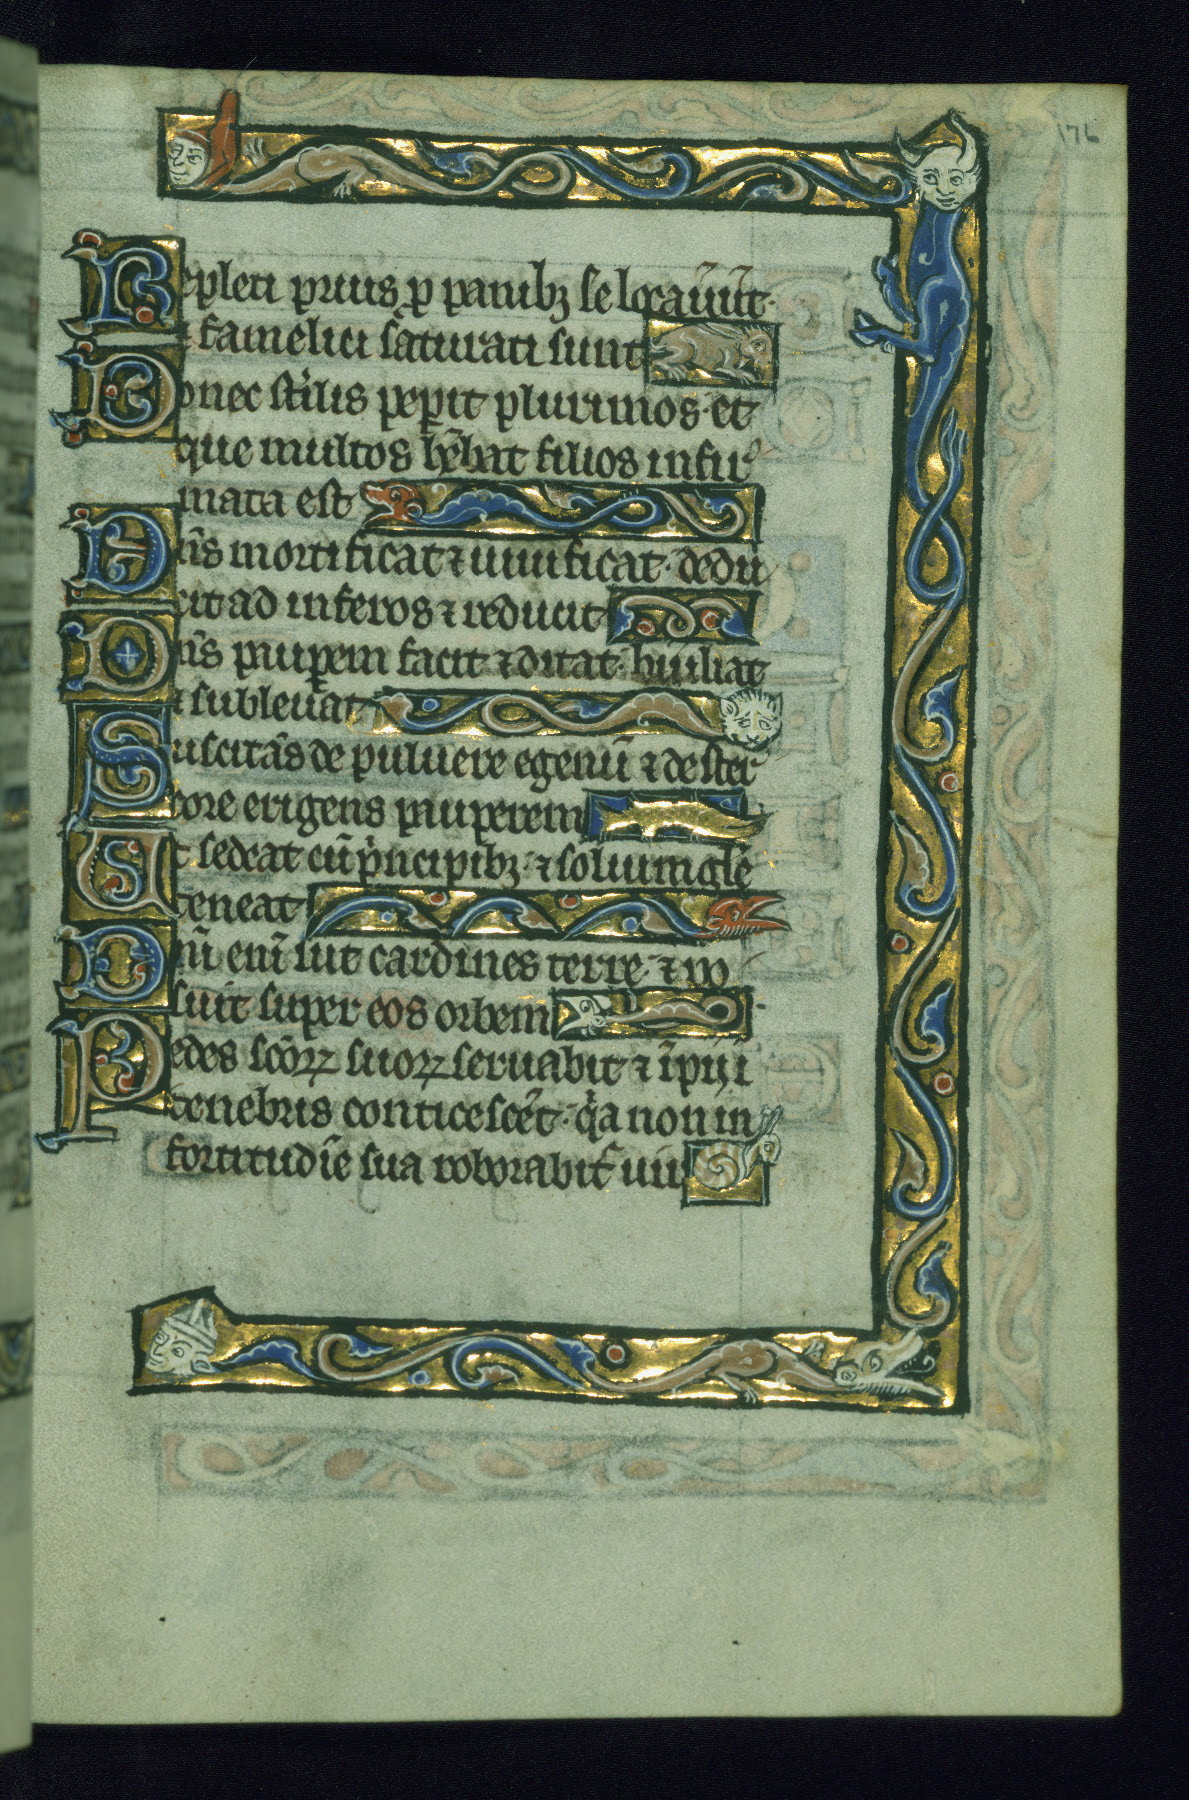 176
Repleti prius p̲ panibꝫ se locauer̄ūt·
⁊ famelici saturati sunt
Donec st̾ilis pep̲it plurimos· et
que multos hēbat filios infirꝰ
mata est
Dn̄s mortificat ⁊ uiuificat· dedu
cit ad inferos ⁊ reducit
Dn̄s paup̲em facit ⁊ ditat· hūiliat
⁊ subleuat
Suscitās de puluere egenū ⁊ de ster
core erigens pauperem
Ut sedeat cū p̾ncipibꝫ· ⁊ solium gl̄e
teneat
Dn̄i eni̅ sūt cardines terre· ⁊ po
suit super eos orbem
Pedes sc̄oꝝ suoꝝ seruabit ⁊ īpii ī
tenebris conticescēt· q̾a non in
fortitudīe sua roborabit̾ uir